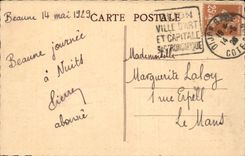 Beaune 14 mai 1929
CARTE POSTALE
DIJON
VILLE D'ART
ET CAPITALE
GASTRONOMIQUE
Beaune journée
à Nuits
Pierre
Mademoiselle
Marguerite Laloy
1 rue Erpell
Le Mans